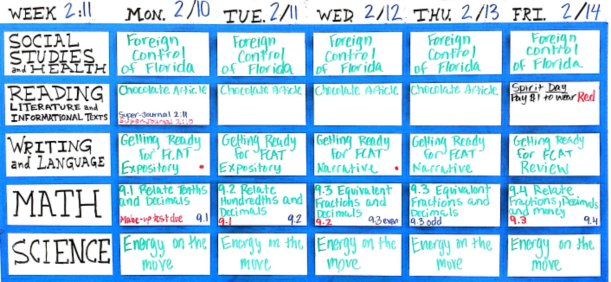 WEEK 2:11 MON. 2/10 TUE. 2/11 WED 2/12 THU. 2/13 FRI. 2/14
SOCIAL
STUDIES
and HEALTH
Foreign
Control
of Florida
Foreign
Control
of Florida
Foreign
Control
of Florida
Foreign
Control
of Florida
Foreign
Control
of Florida
READING
LITERATURE and
INFORMATIONAL TEXTS
Chocolate Article
Super-Journal 2:11
Chocolate Article
Chocolate Article
Chocolate Article
Spirit Day
Pay $1 to wear Red
WRITING
and LANGUAGE
Getting Ready
for FCAT
Expository
Getting Ready
for FCAT
Expository
Getting Ready
for FCAT
Narrative
Getting Ready
for FCAT
Narrative
Getting Ready
for FCAT
Review
MATH
9.1 Relate Tenths
and Decimals
Make-up test due 9.1
9.2 Relate
Hundredths and
Decimals
9.1 9.2
9.3 Equivalent
Fractions and
Decimals
9.2 9.3 even
9.3 Equivalent
Fractions and
Decimals
9.3 odd
9.4 Relate
Fractions, Decimals
and money
9.3 9.4
SCIENCE
Energy on the
move
Energy on the
move
Energy on the
move
Energy on the
move
Energy on the
move